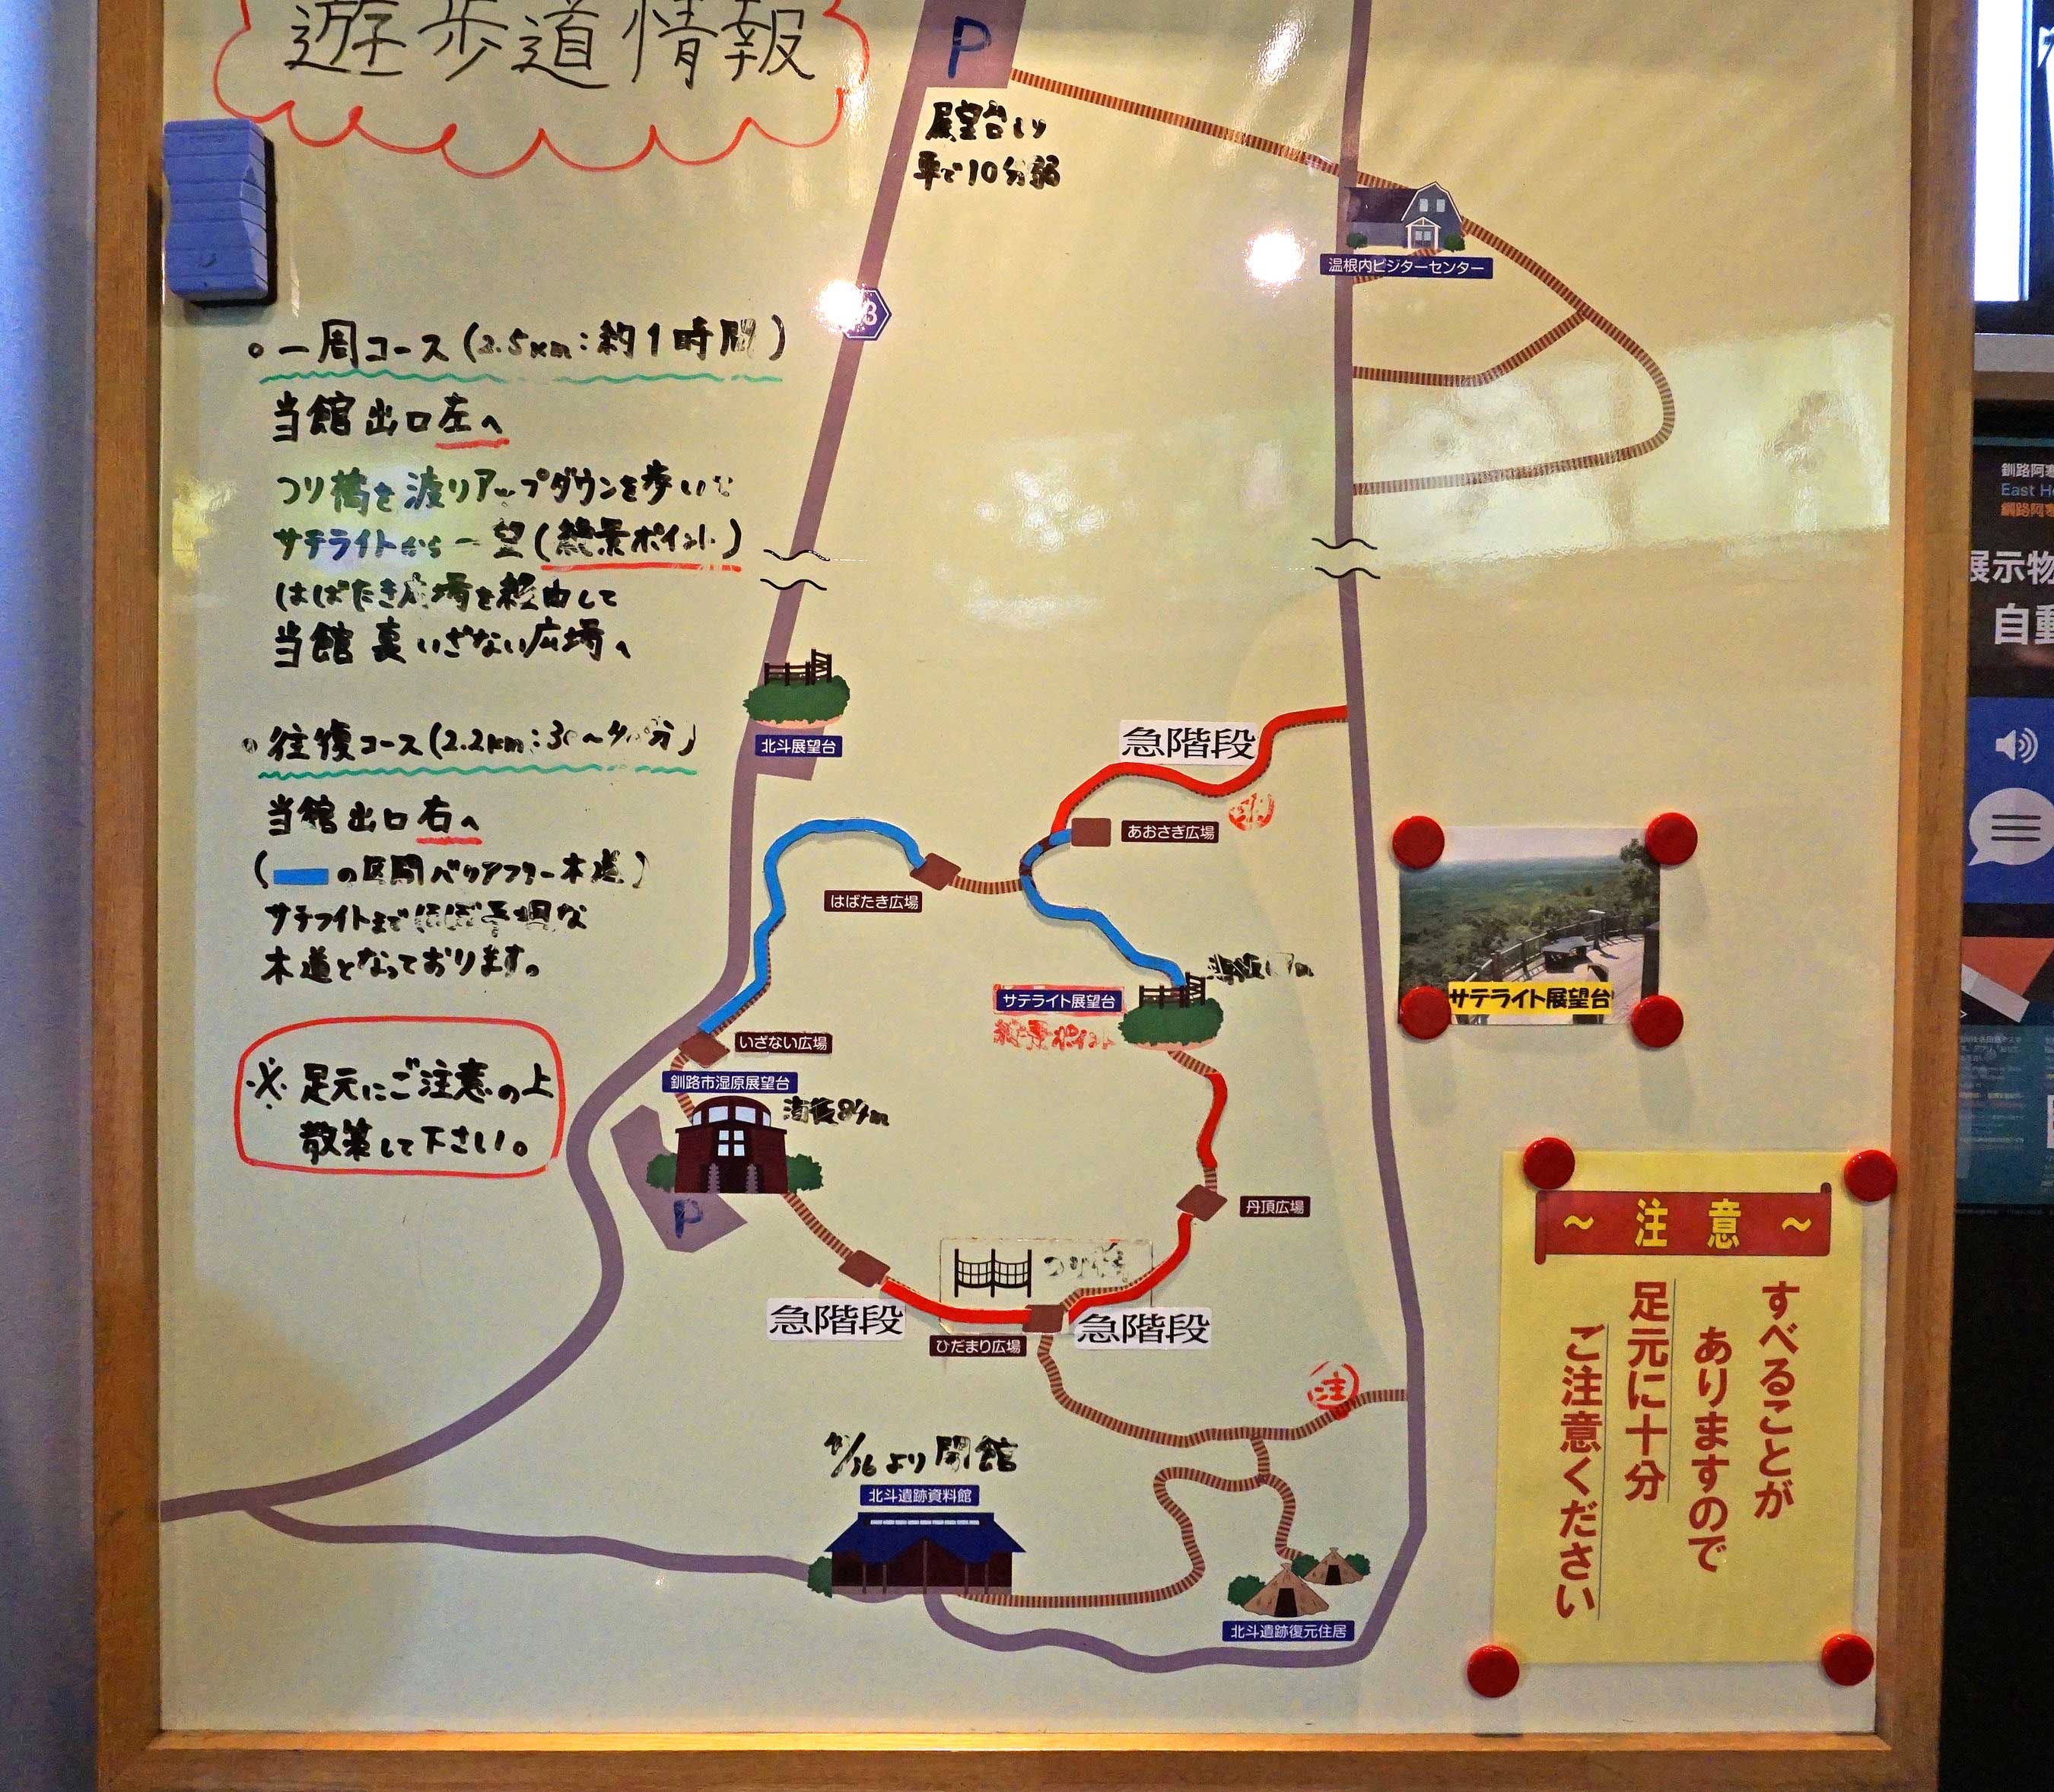 遊歩道情報
P
展望台より
車で10分弱
温根内ビジターセンター
一周コース(2.5km:約1時間)
当館出口左へ
つり橋を渡りアップダウンを歩いて
サテライトから一望(絶景ポイント)
はばたき広場を経由して
当館裏いざない広場へ
往復コース(2.2km:30~40分)
当館出口右へ
(の区間バリアフリー木道)
サテライトまでほぼ平坦な
木道となっております。
※足元にご注意の上
散策して下さい。
北斗展望台
急階段
あおさぎ広場
はばたき広場
サテライト展望台
絶景ポイント
いざない広場
釧路市湿原展望台
海抜84m
P
丹頂広場
つり橋
急階段
急階段
ひだまり広場
注
より開館
北斗遺跡資料館
北斗遺跡復元住居
サテライト展望台
~注意~
すべることが
ありますので
足元に十分
ご注意ください
釧路阿寒
East Ho
展示物
自動